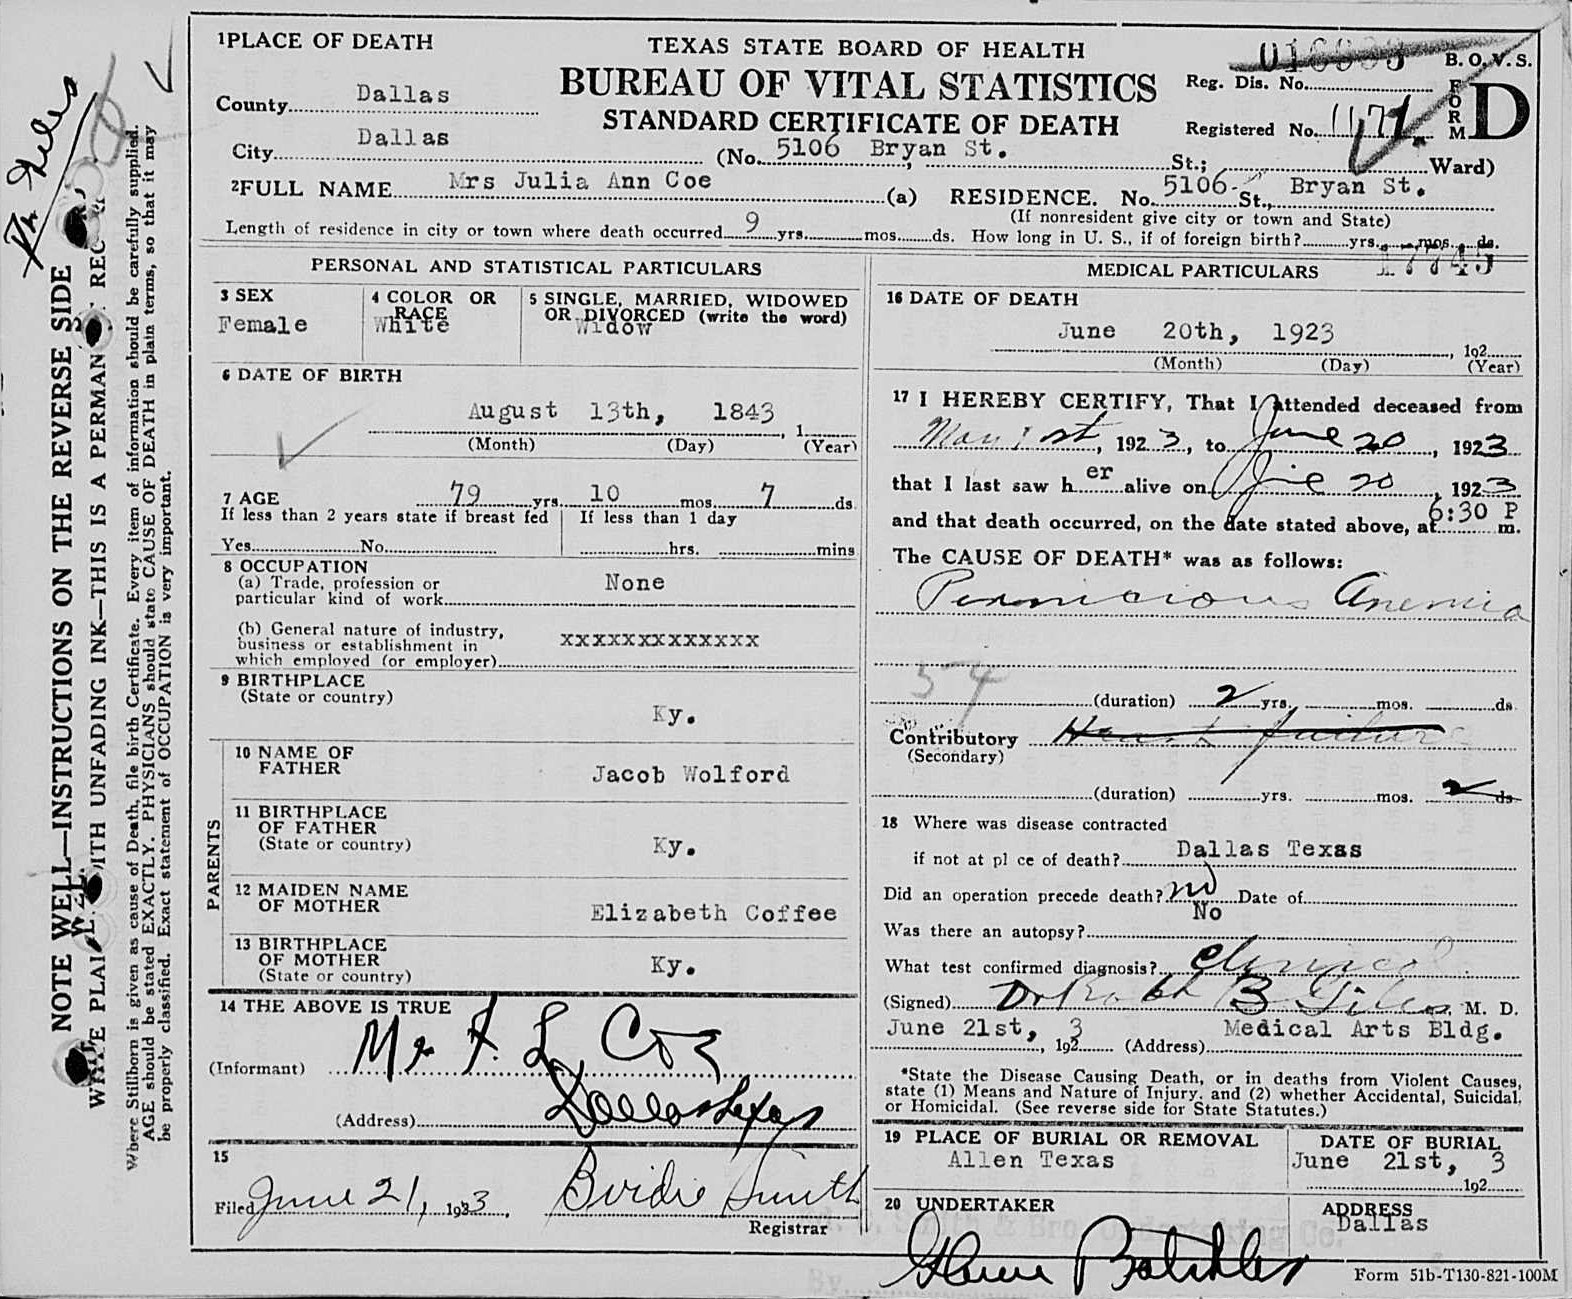 1 PLACE OF DEATH
TEXAS STATE BOARD OF HEALTH
BUREAU OF VITAL STATISTICS
STANDARD CERTIFICATE OF DEATH
B. O. V. S.
Reg. Dis. No.
FORM D
Registered No. 1171
County Dallas
City Dallas (No. 5106 Bryan St. St.; Ward)
2 FULL NAME Mrs Julia Ann Coe (a) RESIDENCE. No. 5106 St., Bryan St.
(If nonresident give city or town and State)
Length of residence in city or town where death occurred 9 yrs. mos. ds. How long in U. S., if of foreign birth? yrs. mos. ds.
17745
PERSONAL AND STATISTICAL PARTICULARS
3 SEX
Female
4 COLOR OR RACE
White
5 SINGLE, MARRIED, WIDOWED
OR DIVORCED (write the word)
Widow
6 DATE OF BIRTH
August 13th, 1843
, 1
(Month) (Day) (Year)
7 AGE 79 yrs. 10 mos. 7 ds.
If less than 2 years state if breast fed
Yes No
If less than 1 day
hrs. mins
8 OCCUPATION
(a) Trade, profession or
particular kind of work None
(b) General nature of industry,
business or establishment in
which employed (or employer) xxxxxxxxxxxxx
9 BIRTHPLACE
(State or country)
Ky.
PARENTS
10 NAME OF
FATHER
Jacob Wolford
11 BIRTHPLACE
OF FATHER
(State or country)
Ky.
12 MAIDEN NAME
OF MOTHER
Elizabeth Coffee
13 BIRTHPLACE
OF MOTHER
(State or country)
Ky.
14 THE ABOVE IS TRUE
(Informant) Mr F. L. Coe
(Address) Dallas Texas
15
Filed June 21, 1923 Birdie Smith
Registrar
MEDICAL PARTICULARS
16 DATE OF DEATH
June 20th, 1923
, 192
(Month) (Day) (Year)
17 I HEREBY CERTIFY, That I attended deceased from
1st, 1923, to June 20, 1923
that I last saw her alive on June 20, 1923
and that death occurred, on the date stated above, at 6:30 P m.
The CAUSE OF DEATH* was as follows:
Pernicious Anemia
54
(duration) 2 yrs. mos. ds
Contributory Heart failure
(Secondary)
(duration) yrs. mos. 2 ds
18 Where was disease contracted
if not at pl ce of death? Dallas Texas
Did an operation precede death? no Date of
No
Was there an autopsy?
What test confirmed diagnosis? Clinical
(Signed) Dr B Giles, M. D.
June 21st, 3
, 192 (Address) Medical Arts Bldg.
*State the Disease Causing Death, or in deaths from Violent Causes,
state (1) Means and Nature of Injury, and (2) whether Accidental, Suicidal,
or Homicidal. (See reverse side for State Statutes.)
19 PLACE OF BURIAL OR REMOVAL
Allen Texas
DATE OF BURIAL
June 21st, 3
192
20 UNDERTAKER
ADDRESS
Dallas
Form 51b-T130-821-100M
NOTE WELL—INSTRUCTIONS ON THE REVERSE SIDE
WRITE PLAINLY WITH UNFADING INK—THIS IS A PERMANENT RECORD
Where Stillborn is given as cause of Death, file birth Certificate. Every item of information should be carefully supplied.
AGE should be stated EXACTLY. PHYSICIANS should state CAUSE OF DEATH in plain terms, so that it may
be properly classified. Exact statement of OCCUPATION is very important.